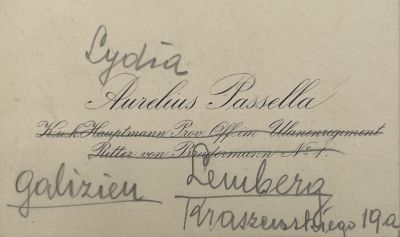 Lydia
Aurelius Passella
K.u.k. Hauptmann Prov. Off. im Ulanenregiment
Ritter von Brudermann No. 1.
galizien Lemberg
Kraszewskiego 19a